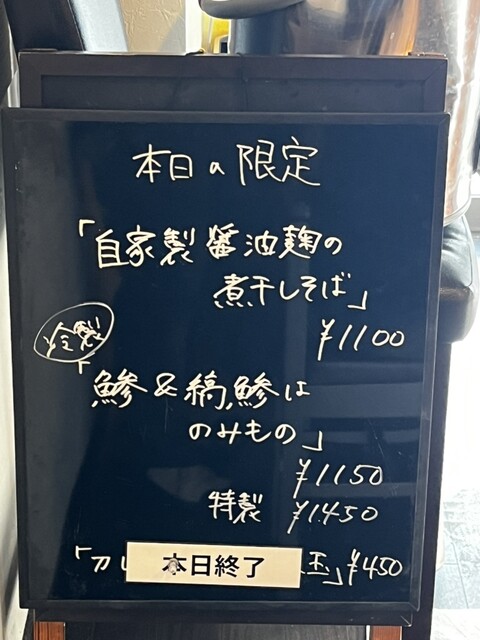 本日の限定
「自家製醤油麹の
煮干しそば」
¥1100
冷製
「鯵&縞鯵は
のみもの」
¥1150
特製 ¥1450
本日終了
玉」¥450